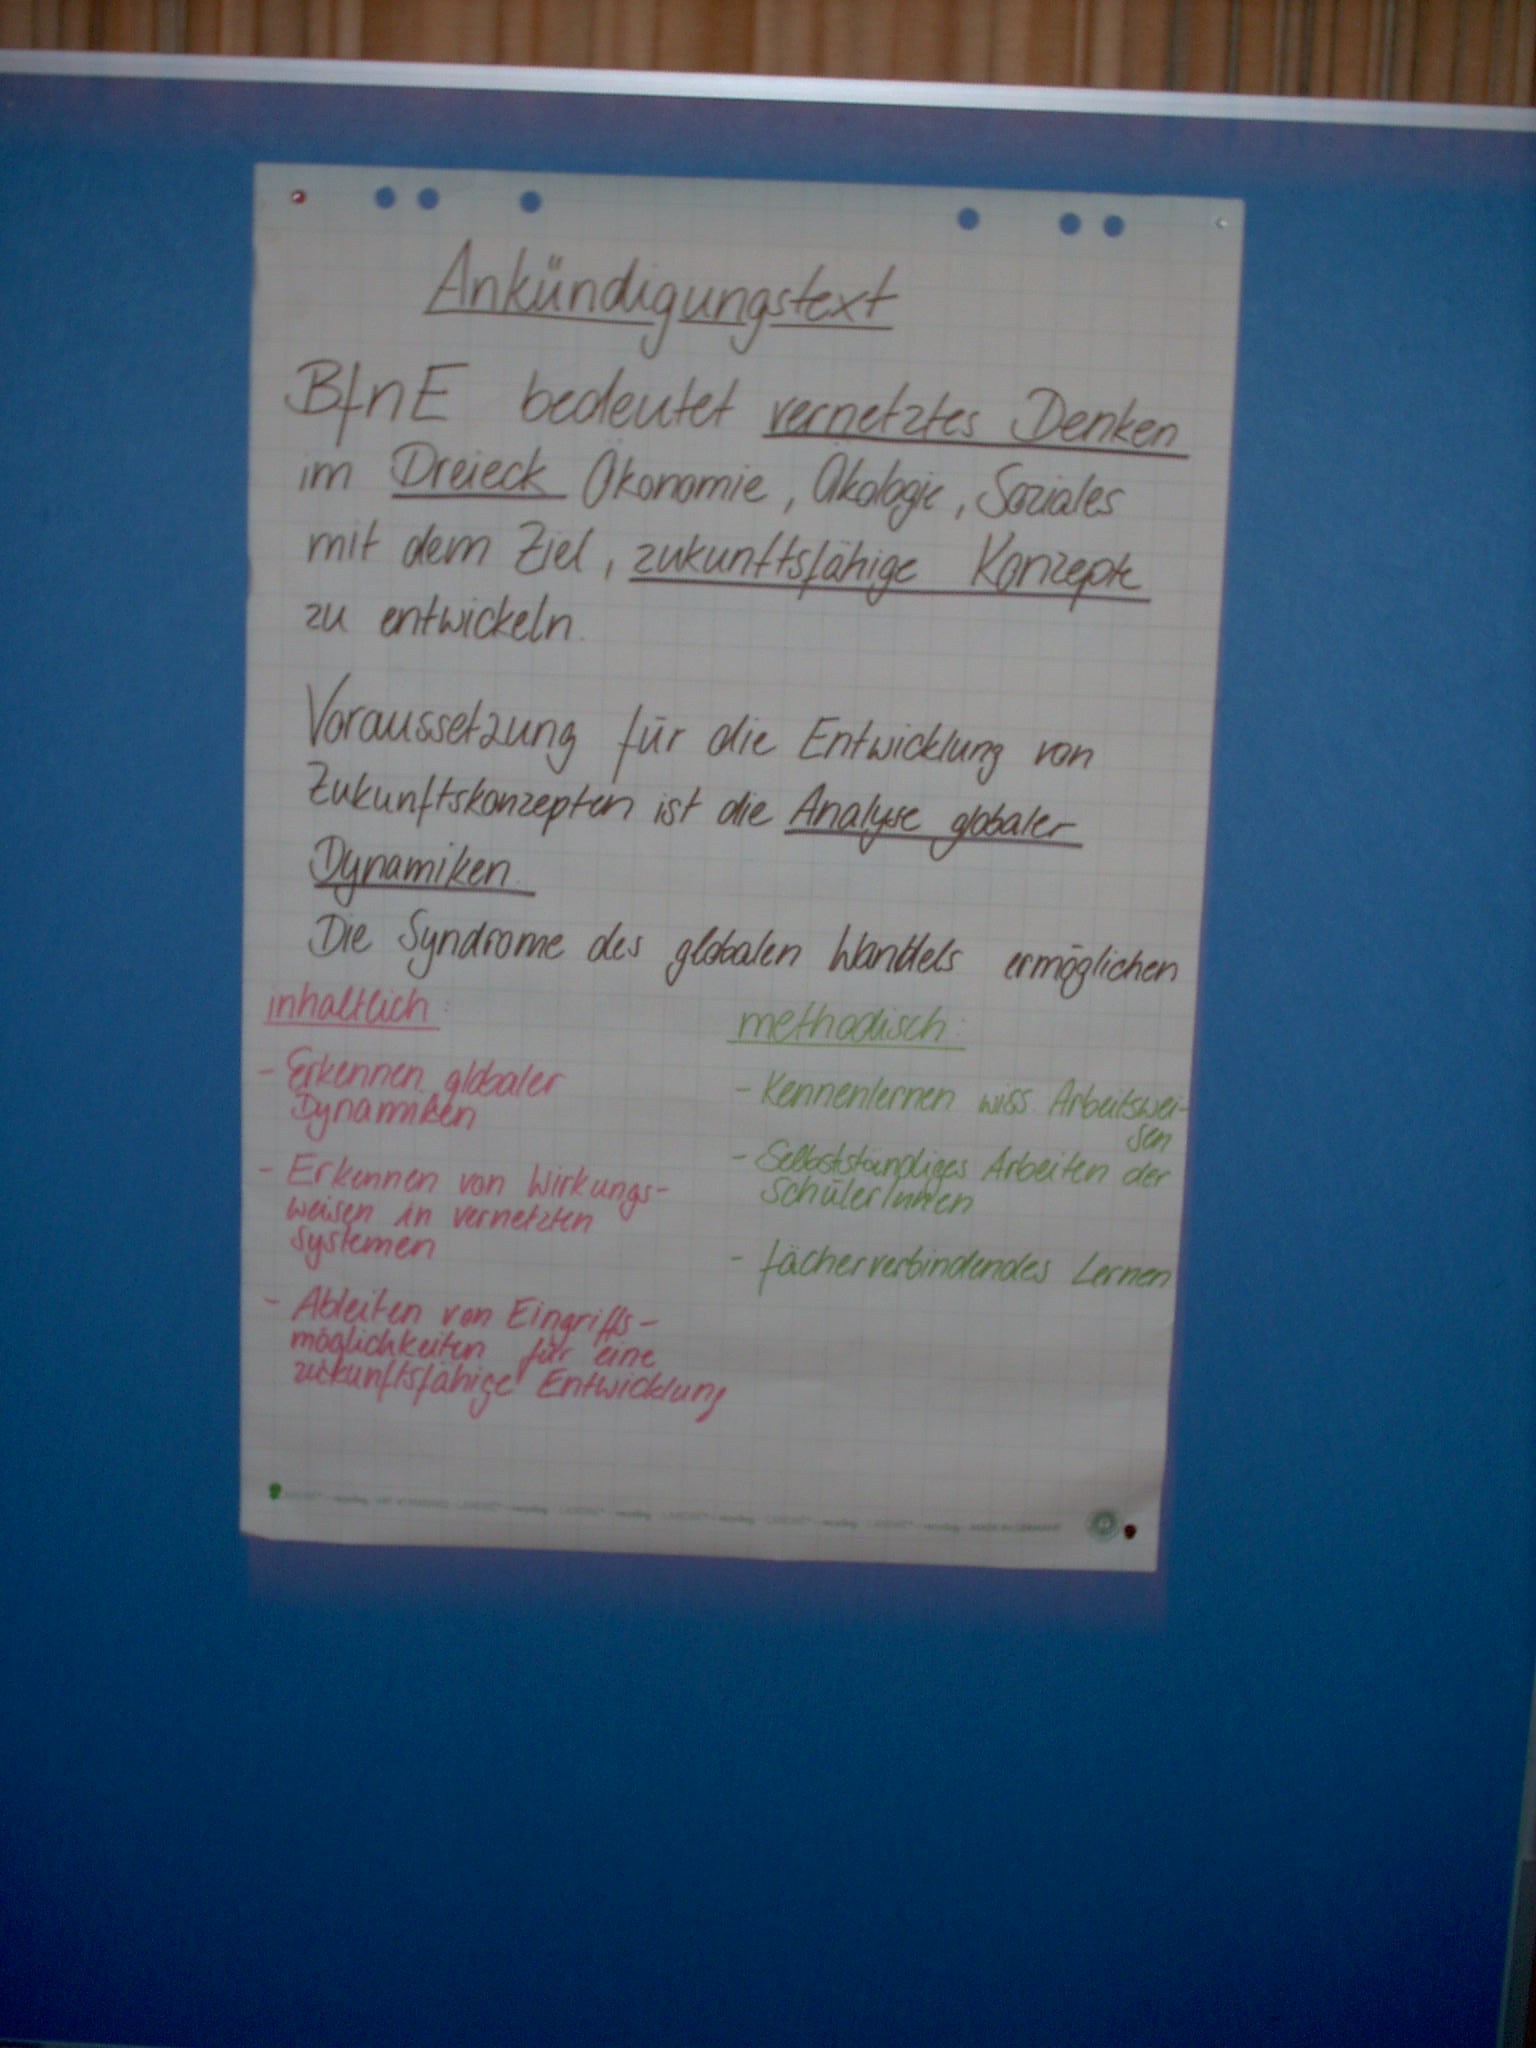 Ankündigungstext
BfnE bedeutet vernetztes Denken
im Dreieck Ökonomie, Ökologie, Soziales
mit dem Ziel, zukunftsfähige Konzepte
zu entwickeln.
Voraussetzung für die Entwicklung von
Zukunftskonzepten ist die Analyse globaler
Dynamiken.
Die Syndrome des globalen Wandels ermöglichen
inhaltlich:
- Erkennen globaler
Dynamiken
- Erkennen von Wirkungs-
weisen in vernetzten
Systemen
- Ableiten von Eingriffs-
möglichkeiten für eine
zukunftsfähige Entwicklung
methodisch:
- Kennenlernen wiss. Arbeitswei-
sen
- Selbstständiges Arbeiten der
SchülerInnen
- fächerverbindendes Lernen